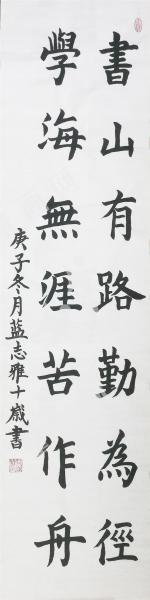 書山有路勤為徑
學海無涯苦作舟
庚子冬月藍志雅十歲書